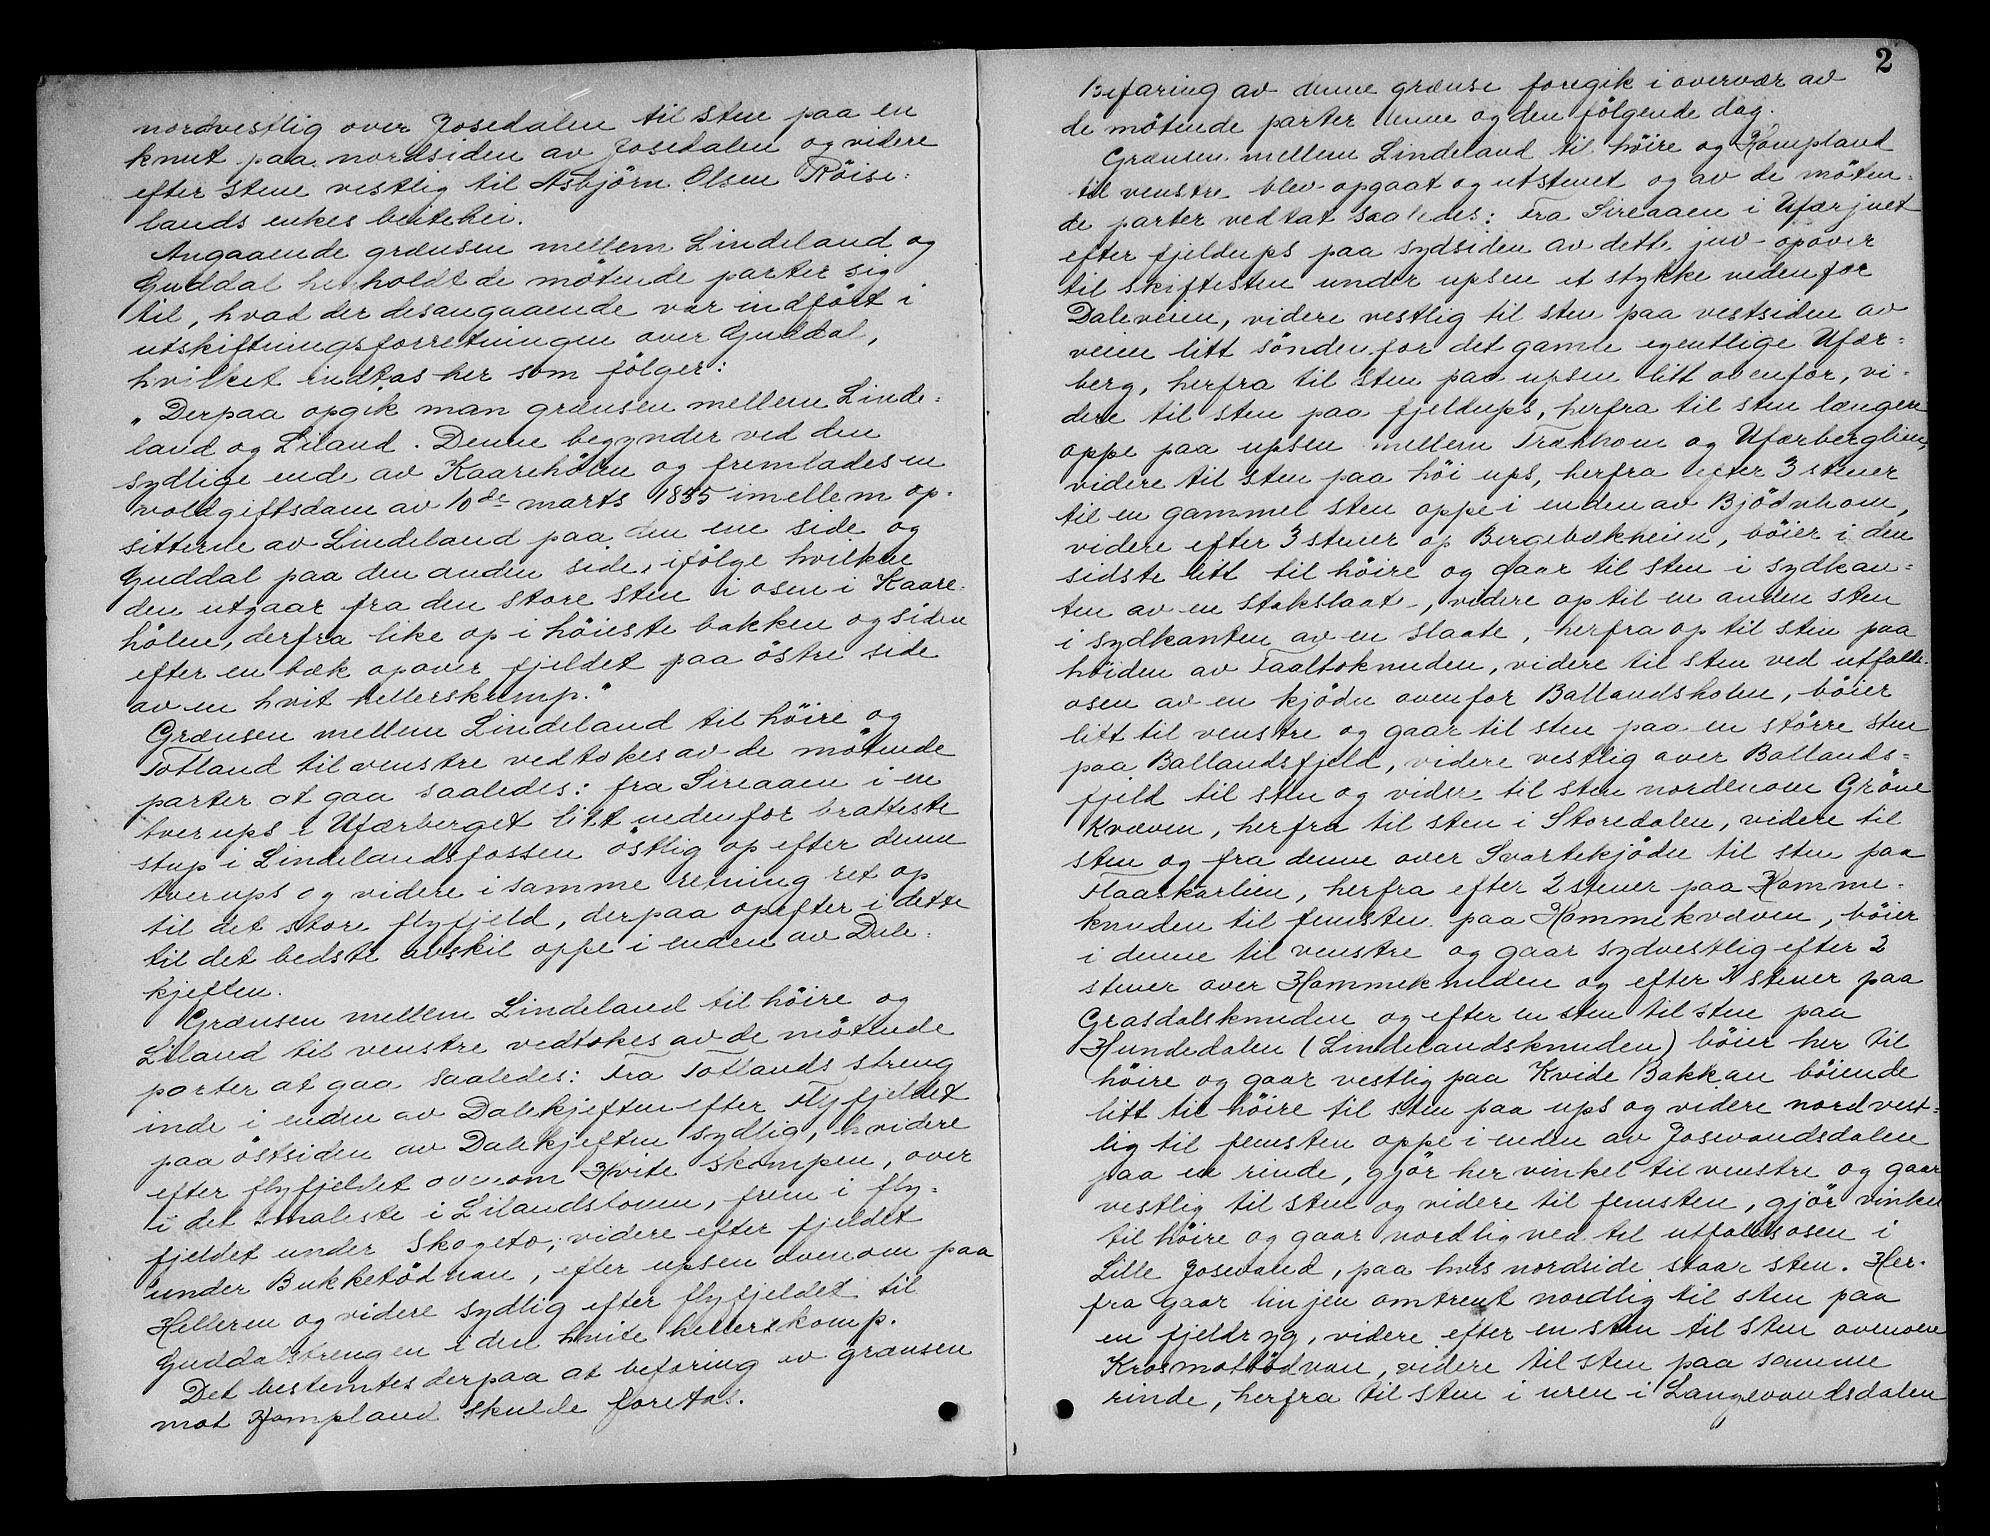 nordvestlig over Josedalen til sten paa en
knut paa nordsiden av Josedalen og videre
efter stene vestlig til Asbjörn Olsen Röise-
lands enkes beitehei.
Angaaende grænsen mellem Lindeland og
Guddal henholdt de mötende parter sig
til, hvad der desangaaende var indfört i
utskiftningsforretningen over Guddal,
hvilket indtas her som fölger:
„Derpaa opgik man grænsen mellem Linde-
land og Liland. Denne begynder ved den
sydlige ende av Kaarehölen og fremlades en
voldgiftsdom av 10de marts 1835 imellem op-
sitterne av Lindeland paa den ene side og
Guddal paa den anden side, ifölge hvilken
den utgaar fra den store sten i osen i Kaare-
hölen, derfra like op i höieste bakken og siden
efter en bæk opover fjeldet paa östre side
av en hvit hellerskamp.“
Grænsen mellem Lindeland til höire og
Totland til venstre vedtokes av de mötende
parter at gaa saaledes: fra Sireaaen i en
tverups i Ufærberget litt nedenfor bratteste
stup i Lindelandsfossen östlig op efter denne
tverups og videre i samme retning ret op
til det store flyfjeld, derpaa opefter i dette
til det bedste avskil oppe i enden av Dale-
kjeften.
Grænsen mellem Lindeland til höire og
Liland til venstre vedtokes av de mötende
parter at gaa saaledes: Fra Totlands streng
inde i enden av Dalekjeften efter Flyfjeldet
paa östsiden av Dalekjeften sydlig, hvidere
efter flyfjeldet ovenom Hvite skompen, over
i det smaleste i Lilandstonen, frem i fly-
fjeldet under Skogeto, videre efter fjeldet
under Bukketödnan, efter upsen ovenom paa
Helleren og videre sydlig efter flyfjeldet til
Guddalstrengen i den hvite hellerskomp.
Det bestemtes derpaa at befaring av grænsen
mot Hompland skulde foretas.
2
Befaring av denne grænse foregik i overvær av
de mötende parter denne og den fölgende dag.
Grænsen mellem Lindeland til höire og Hompland
til venstre blev opgaat og utstenet og av de möten-
de parter vedtat saaledes: Fra Sireaaen i Ufærjuvet
efter fjeldups paa sydsiden av dette juv opover
til skiftesten under upsen et stykke nedenfor
Daleveien, videre vestlig til sten paa vestsiden av
veien litt söndenfor det gamle egentlige Ufær-
berg, herfra til sten paa upsen litt ovenfor, vi-
dere til sten paa fjeldups, herfra til sten længere
oppe paa upsen mellem Trækhom og Ufærberglien,
videre til sten paa höi ups, herfra efter 3 stener
til en gammel sten oppe i enden av Bjödnhom,
videre efter 3 stener op Bergebækheien, böier i den
sidste litt til höire og gaar til sten i sydkan-
ten av en stakslaate, videre op til en anden sten
i sydkanten av en slaate, herfra op til sten paa
höiden av Taaltoknuden, videre til sten ved utfalds-
osen av en kjödn ovenfor Ballandsholen, böier
litt til venstre og gaar til sten paa en större sten
paa Ballandsfjeld, videre vestlig over Ballands-
fjeld til sten og videre til sten nordenom Gröne
Kvæven, herfra til sten i Storedalen, videre til
sten og fra denne over Svartekjödn til sten paa
Flaaskarlien, herfra efter 2 stener paa Homme-
knuden til femsten paa Hommekvæven, böier
i denne til venstre og gaar sydvestlig efter 2
stener over Hommeknuden og efter stener paa
Grasdalsknuden og efter en sten til sten paa
Hundedalen (Lindelandsknuden) böier her til
höire og gaar vestlig paa Kvide Bakkan böiende
litt til höire til sten paa ups og videre nordvest-
lig til femsten oppe i enden av Josevandsdalen
paa en rinde, gjör her vinkel til venstre og gaar
vestlig til sten og videre til femsten, gjör vinkel
til höire og gaar nordlig ned til utfaldsosen i
Lille Josevand, paa hvis nordside staar sten. Her-
fra gaar linjen omtrent nordlig til sten paa
en fjeldryg, videre efter en sten til sten ovenom
Krosmoltödvan, videre til sten paa samme
rinde, herfra til sten i uren i Langevandsdalen